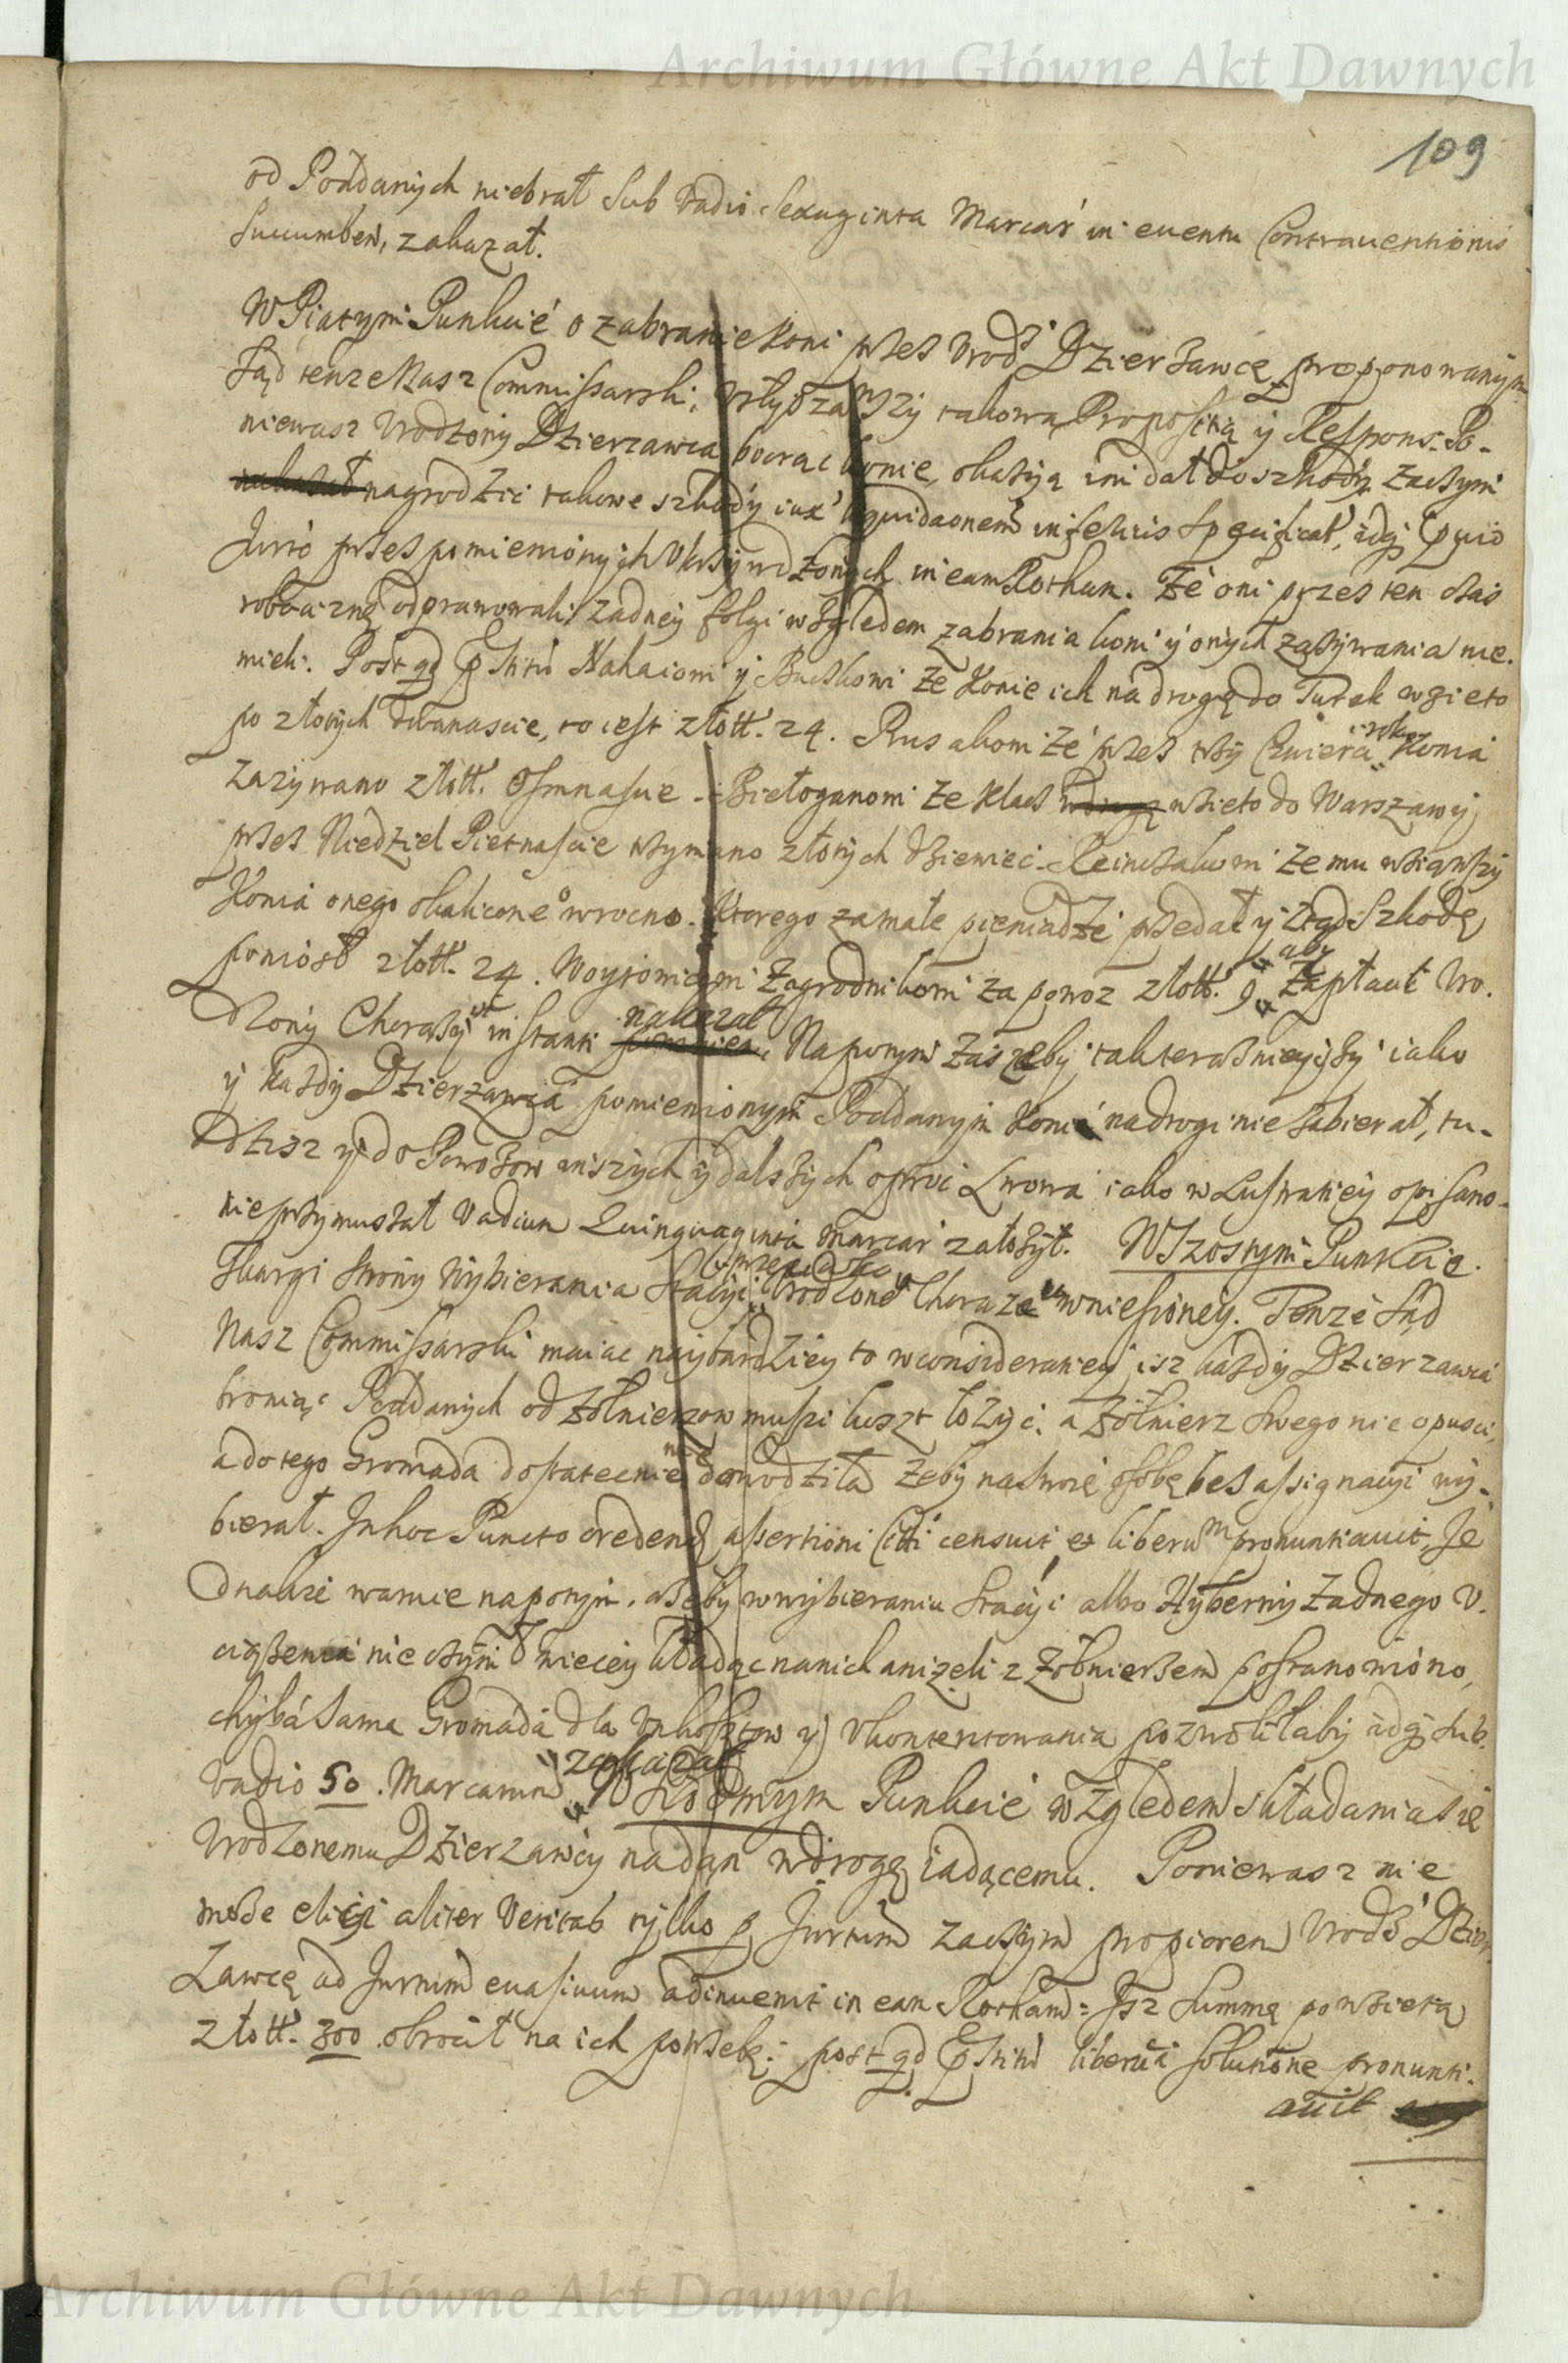 Archiwum Główne Akt Dawnych
109
od Poddanych niebrał Sub vadio Sexaginta Marcar in euentu Contrauentionis
Succumben, zakazał.
W Piątym Punkcie o zabranie koni przes Urodz Dzierzawcę proponowanym
Sąd tenze Nasz Commissarski, Usłyszawszy takową Propositią y Respons. Po-
niewasz Urodzony Dzierzawca biorąc konie, okazyą im dał do szkody zaczym
nagrodzic takowe szkody iuxᵃ liquidaonem inferius Specificat, idq
Jurto przes pomienionych Ukrzywdzonych in eam Rotham. Ze oni przes ten czas
robociznę odprawowali Zadney folgi względem zabrania koni y onych zazywania nie
mieli. Post qd Nahaiowi y Buczkowi Ze Konie ich na drogę do Turek wzięto
po złotych dwanascie, to iest złott. 24. Rusakowi ze przes trzy Cwierci roku Konia
Zazywano złott. Osmnascie - Biełoganowi ze klacz wzieto do Warszawy
przes Niedziel Pietnascie trzymano złotych dziewięć. Reinczakowi ze mu wziąwszy
Konia onego okaliczone° wrocno. Ktorego za małe pieniadze przedał y ztąd Szkodę
poniosł złott. 24. Zagrodnikowi za powoz złott. 9 aby Zapłacił Uro-
dzony Chorązy ut in stanti nakazał. Napotym zas zeby tak teraznieyszy iako
y kazdy Dzierzawca pomienionym Poddanym Koni na drogi nie zabierał, tu-
dziesz y do Powozow inszych y dalszych oprocz Lwowa iako w Lustratiey opisano
nieprzymuszał Vadium Quinquaginta Marcar załozył. W Szostym Punkcie
Skargi strony Wybierania Stacyi przeciwko Urodzone Chorąze wniesioney. Tenze Sąd
Nasz Commissarski maiąc naybardziey to w consideratiey isz kazdy Dzierzawca
broniąc Poddanych od zołnierzow musi kuszt łozyc, a zołnierz swego nie opusci,
a do tego Gromada dostatecnie nie dowodziła zeby na swoię osobę bes assignacyi wy-
bierał. In hoc Puncto credend assertioni Citti censuit et liberum pronuntiauit, Je
dnakze waruie napotym, azeby w wybieraniu Stacyi albo Hyberny zadnego U-
ciązenia nie czynił wiecey wkładąc na nich anizeli z zołnierzem postanowiono,
chyba Sama Gromada dla Unkosztow y Ukontentowania pozwoliłaby idq Sub
vadio 50. Marcarum zakazał W Siodmym Punkcie względem składania się
Urodzonemu Dzierzawcy na dan w drogę iadącemu. Poniewasz nie
moze elici aliter Veritas tylko p Jurtum zaczym propiorem Urodz Dzier
zawcę ad Jurtum euasiuum adinuenit in eam Rotham: Isz Summę powzietą
złott. 300 obrocił na ich potrzebę: post qd liberu a solutione pronunti-
auit
Archiwum Główne Akt Dawnych